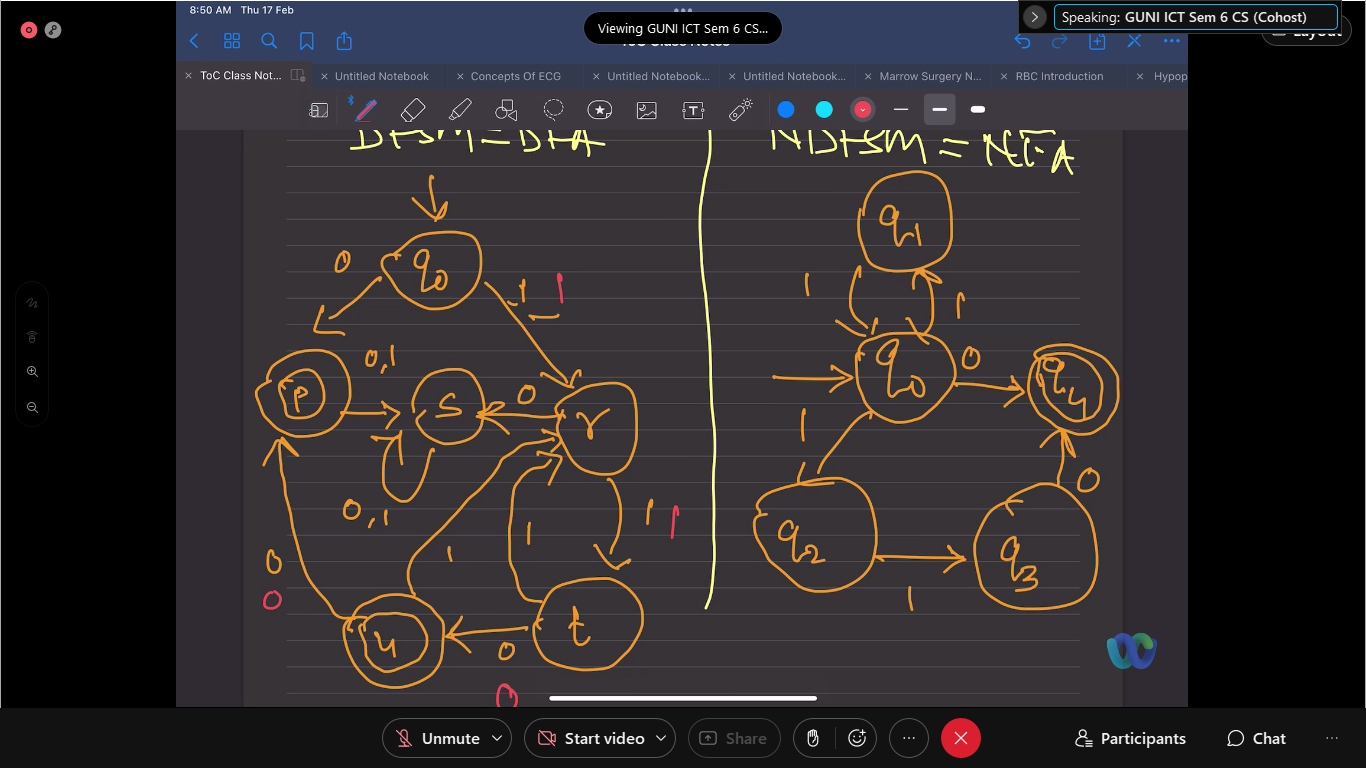 8:50 AM Thu 17 Feb
Viewing GUNI ICT Sem 6 CS...
Speaking: GUNI ICT Sem 6 CS (Cohost)
Layout
ToC Class Notes
ToC Class Not...
Untitled Notebook
Concepts Of ECG
Untitled Notebook...
Untitled Notebook...
Marrow Surgery N...
RBC Introduction
Hypop
DFSM = DFA
NDFSM = NFA
q1
0
q0
1
1
1
1
p
0,1
s
0
r
q0
0
q4
1
0,1
1
1
1
1
q2
q3
0
0
0
1
u
0
0
t
Unmute
Start video
Share
Participants
Chat